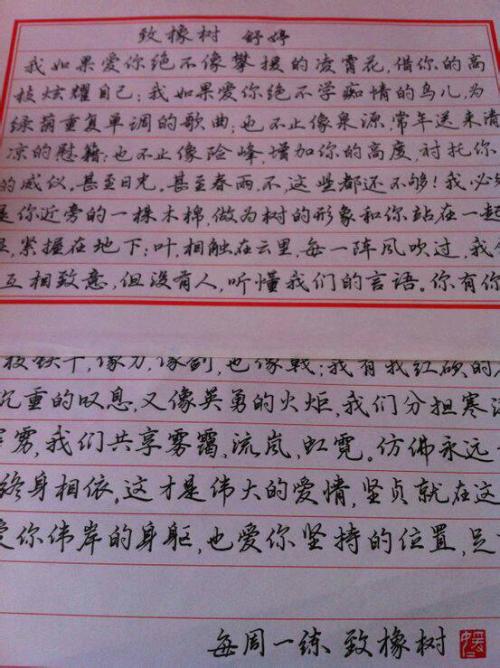 致橡树 舒婷
我如果爱你绝不像攀援的凌霄花,借你的高
枝炫耀自己;我如果爱你绝不学痴情的鸟儿,为
绿荫重复单调的歌曲;也不止像泉源,常年送来清
凉的慰籍;也不止像险峰,增加你的高度,衬托你
的威仪,甚至日光,甚至春雨,不,这些都还不够!我必
是你近旁的一株木棉,做为树的形象和你站在一起
紧握在地下;叶,相触在云里,每一阵风吹过,我
互相致意,但没有人,听懂我们的言语。你有你
枝铁干,像刀,像剑,也像戟;我有我红硕的
沉重的叹息,又像英勇的火炬,我们分担寒
雳,我们共享雾霭,流岚,虹霓。仿佛永远
终身相依。这才是伟大的爱情,坚贞就在这
爱你伟岸的身躯,也爱你坚持的位置,足
每周一练 致橡树